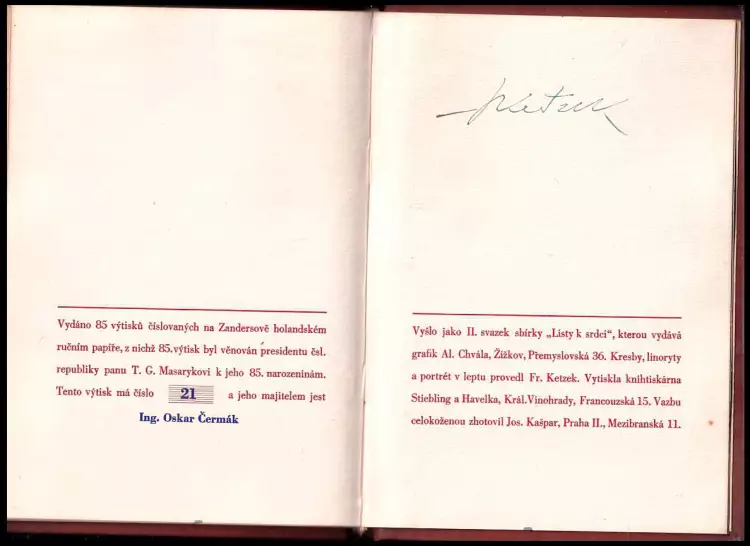 Vydáno 85 výtisků číslovaných na Zandersově holandském
ručním papíře, z nichž 85. výtisk byl věnován presidentu čsl.
republiky panu T. G. Masarykovi k jeho 85. narozeninám.
Tento výtisk má číslo 21 a jeho majitelem jest
Ing. Oskar Čermák
Ketzek
Vyšlo jako II. svazek sbírky „Listy k srdci“, kterou vydává
grafik Al. Chvála, Žižkov, Přemyslovská 36. Kresby, linoryty
a portrét v leptu provedl Fr. Ketzek. Vytiskla knihtiskárna
Stiebling a Havelka, Král. Vinohrady, Francouzská 15. Vazbu
celokoženou zhotovil Jos. Kašpar, Praha II., Mezibranská 11.